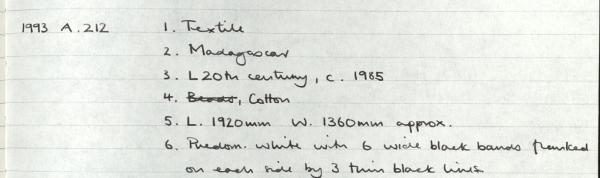 1993 A.212 1. Textile
2. Madagascar
3. L20th century, c. 1985
4. Beads, Cotton
5. L. 1920mm W. 1360mm approx.
6. Predom. white with 6 wide black bands flanked
on each side by 3 thin black lines